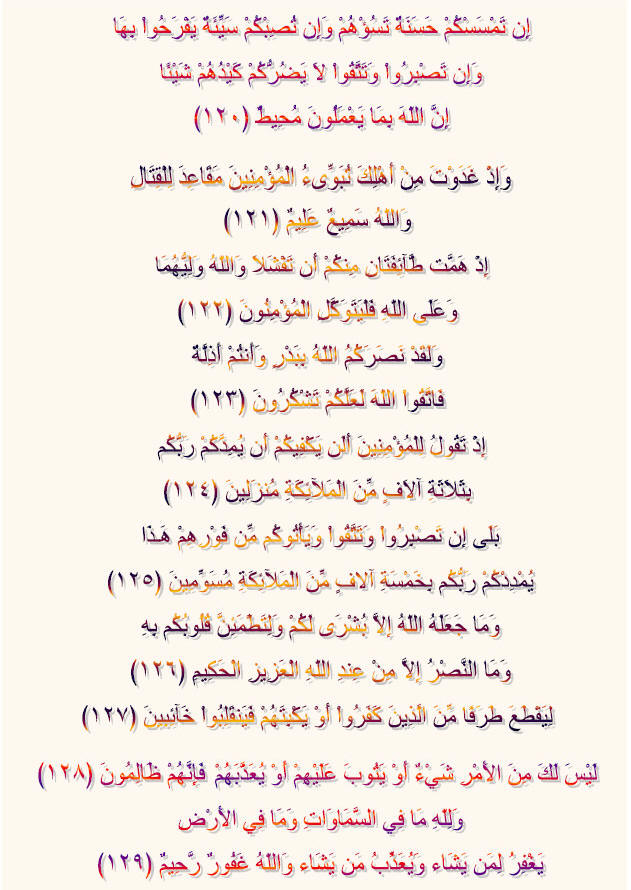 إِن تَمْسَسْكُمْ حَسَنَةٌ تَسُؤْهُمْ وَإِن تُصِبْكُمْ سَيِّئَةٌ يَفْرَحُواْ بِهَا
وَإِن تَصْبِرُواْ وَتَتَّقُواْ لاَ يَضُرُّكُمْ كَيْدُهُمْ شَيْئًا
إِنَّ اللّهَ بِمَا يَعْمَلُونَ مُحِيطٌ (١٢٠)
وَإِذْ غَدَوْتَ مِنْ أَهْلِكَ تُبَوِّىءُ الْمُؤْمِنِينَ مَقَاعِدَ لِلْقِتَالِ
وَاللّهُ سَمِيعٌ عَلِيمٌ (١٢١)
إِذْ هَمَّت طَّآئِفَتَانِ مِنكُمْ أَن تَفْشَلاَ وَاللّهُ وَلِيُّهُمَا
وَعَلَى اللّهِ فَلْيَتَوَكَّلِ الْمُؤْمِنُونَ (١٢٢)
وَلَقَدْ نَصَرَكُمُ اللّهُ بِبَدْرٍ وَأَنتُمْ أَذِلَّةٌ
فَاتَّقُواْ اللّهَ لَعَلَّكُمْ تَشْكُرُونَ (١٢٣)
إِذْ تَقُولُ لِلْمُؤْمِنِينَ أَلَن يَكْفِيكُمْ أَن يُمِدَّكُمْ رَبُّكُم
بِثَلاَثَةِ آلاَفٍ مِّنَ الْمَلآئِكَةِ مُنزَلِينَ (١٢٤)
بَلَى إِن تَصْبِرُواْ وَتَتَّقُواْ وَيَأْتُوكُم مِّن فَوْرِهِمْ هَـذَا
يُمْدِدْكُمْ رَبُّكُم بِخَمْسَةِ آلافٍ مِّنَ الْمَلآئِكَةِ مُسَوِّمِينَ (١٢٥)
وَمَا جَعَلَهُ اللّهُ إِلاَّ بُشْرَى لَكُمْ وَلِتَطْمَئِنَّ قُلُوبُكُم بِهِ
وَمَا النَّصْرُ إِلاَّ مِنْ عِندِ اللّهِ الْعَزِيزِ الْحَكِيمِ (١٢٦)
لِيَقْطَعَ طَرَفًا مِّنَ الَّذِينَ كَفَرُواْ أَوْ يَكْبِتَهُمْ فَيَنقَلِبُواْ خَآئِبِينَ (١٢٧)
لَيْسَ لَكَ مِنَ الأَمْرِ شَيْءٌ أَوْ يَتُوبَ عَلَيْهِمْ أَوْ يُعَذَّبَهُمْ فَإِنَّهُمْ ظَالِمُونَ (١٢٨)
وَلِلّهِ مَا فِي السَّمَاوَاتِ وَمَا فِي الأَرْضِ
يَغْفِرُ لِمَن يَشَاء وَيُعَذِّبُ مَن يَشَاء وَاللّهُ غَفُورٌ رَّحِيمٌ (١٢٩)